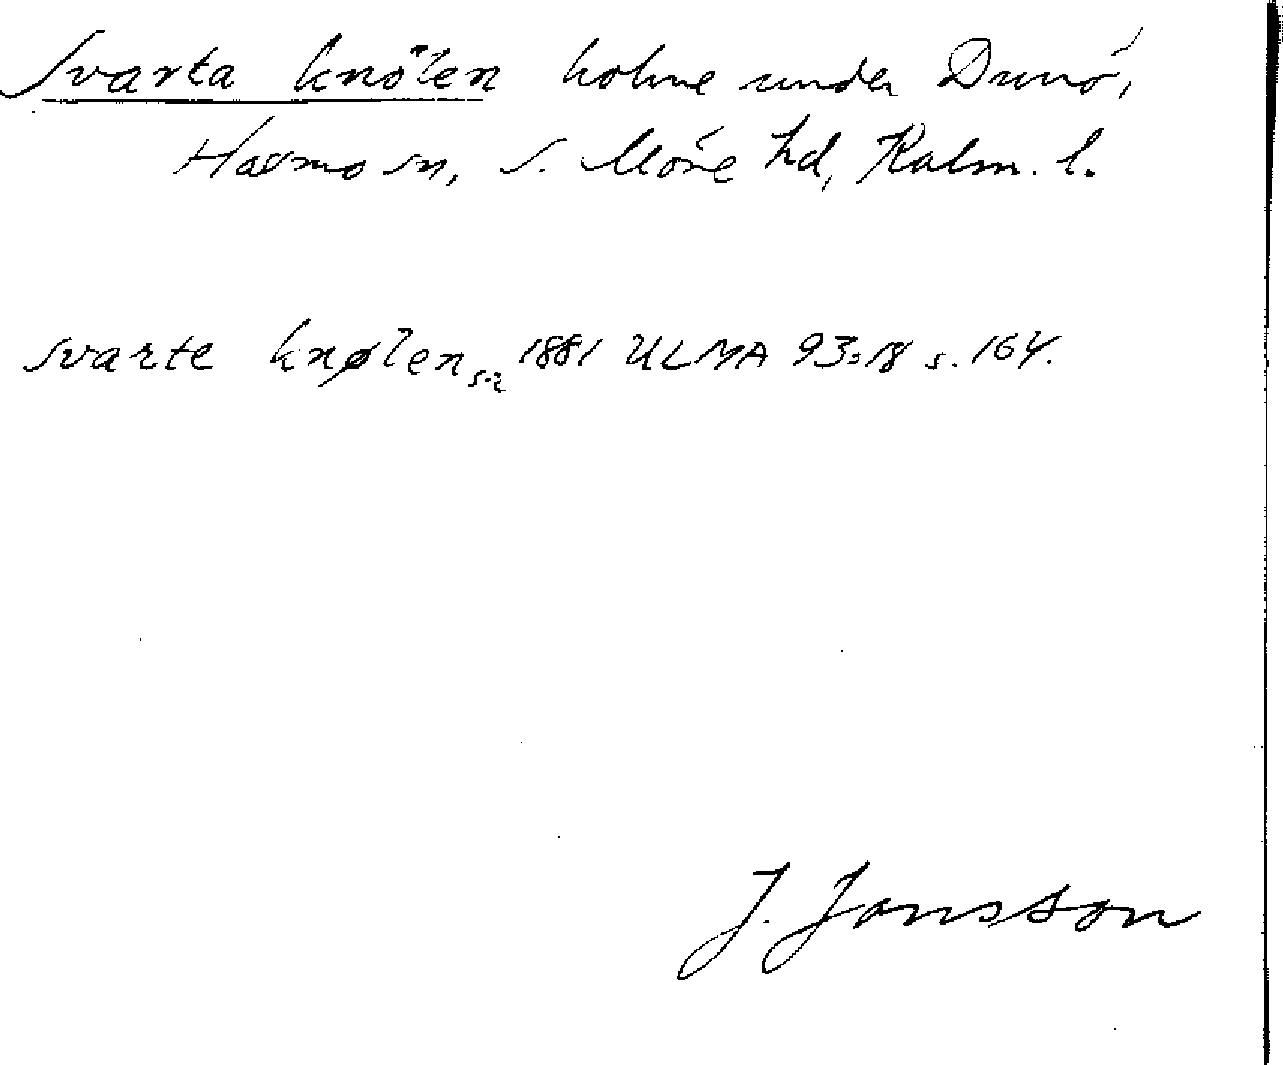 Svarta knölen holme under Dunö,
Hagsmo sn, S. Möre hd, Kalm. l.
svarte knølen s.2 1881 ULMA 93:18 s. 164.
J. Jonsson